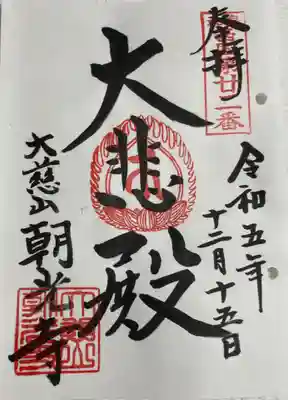 奉拝
大悲殿
令和五年
十二月十五日
大慈山
朝光寺